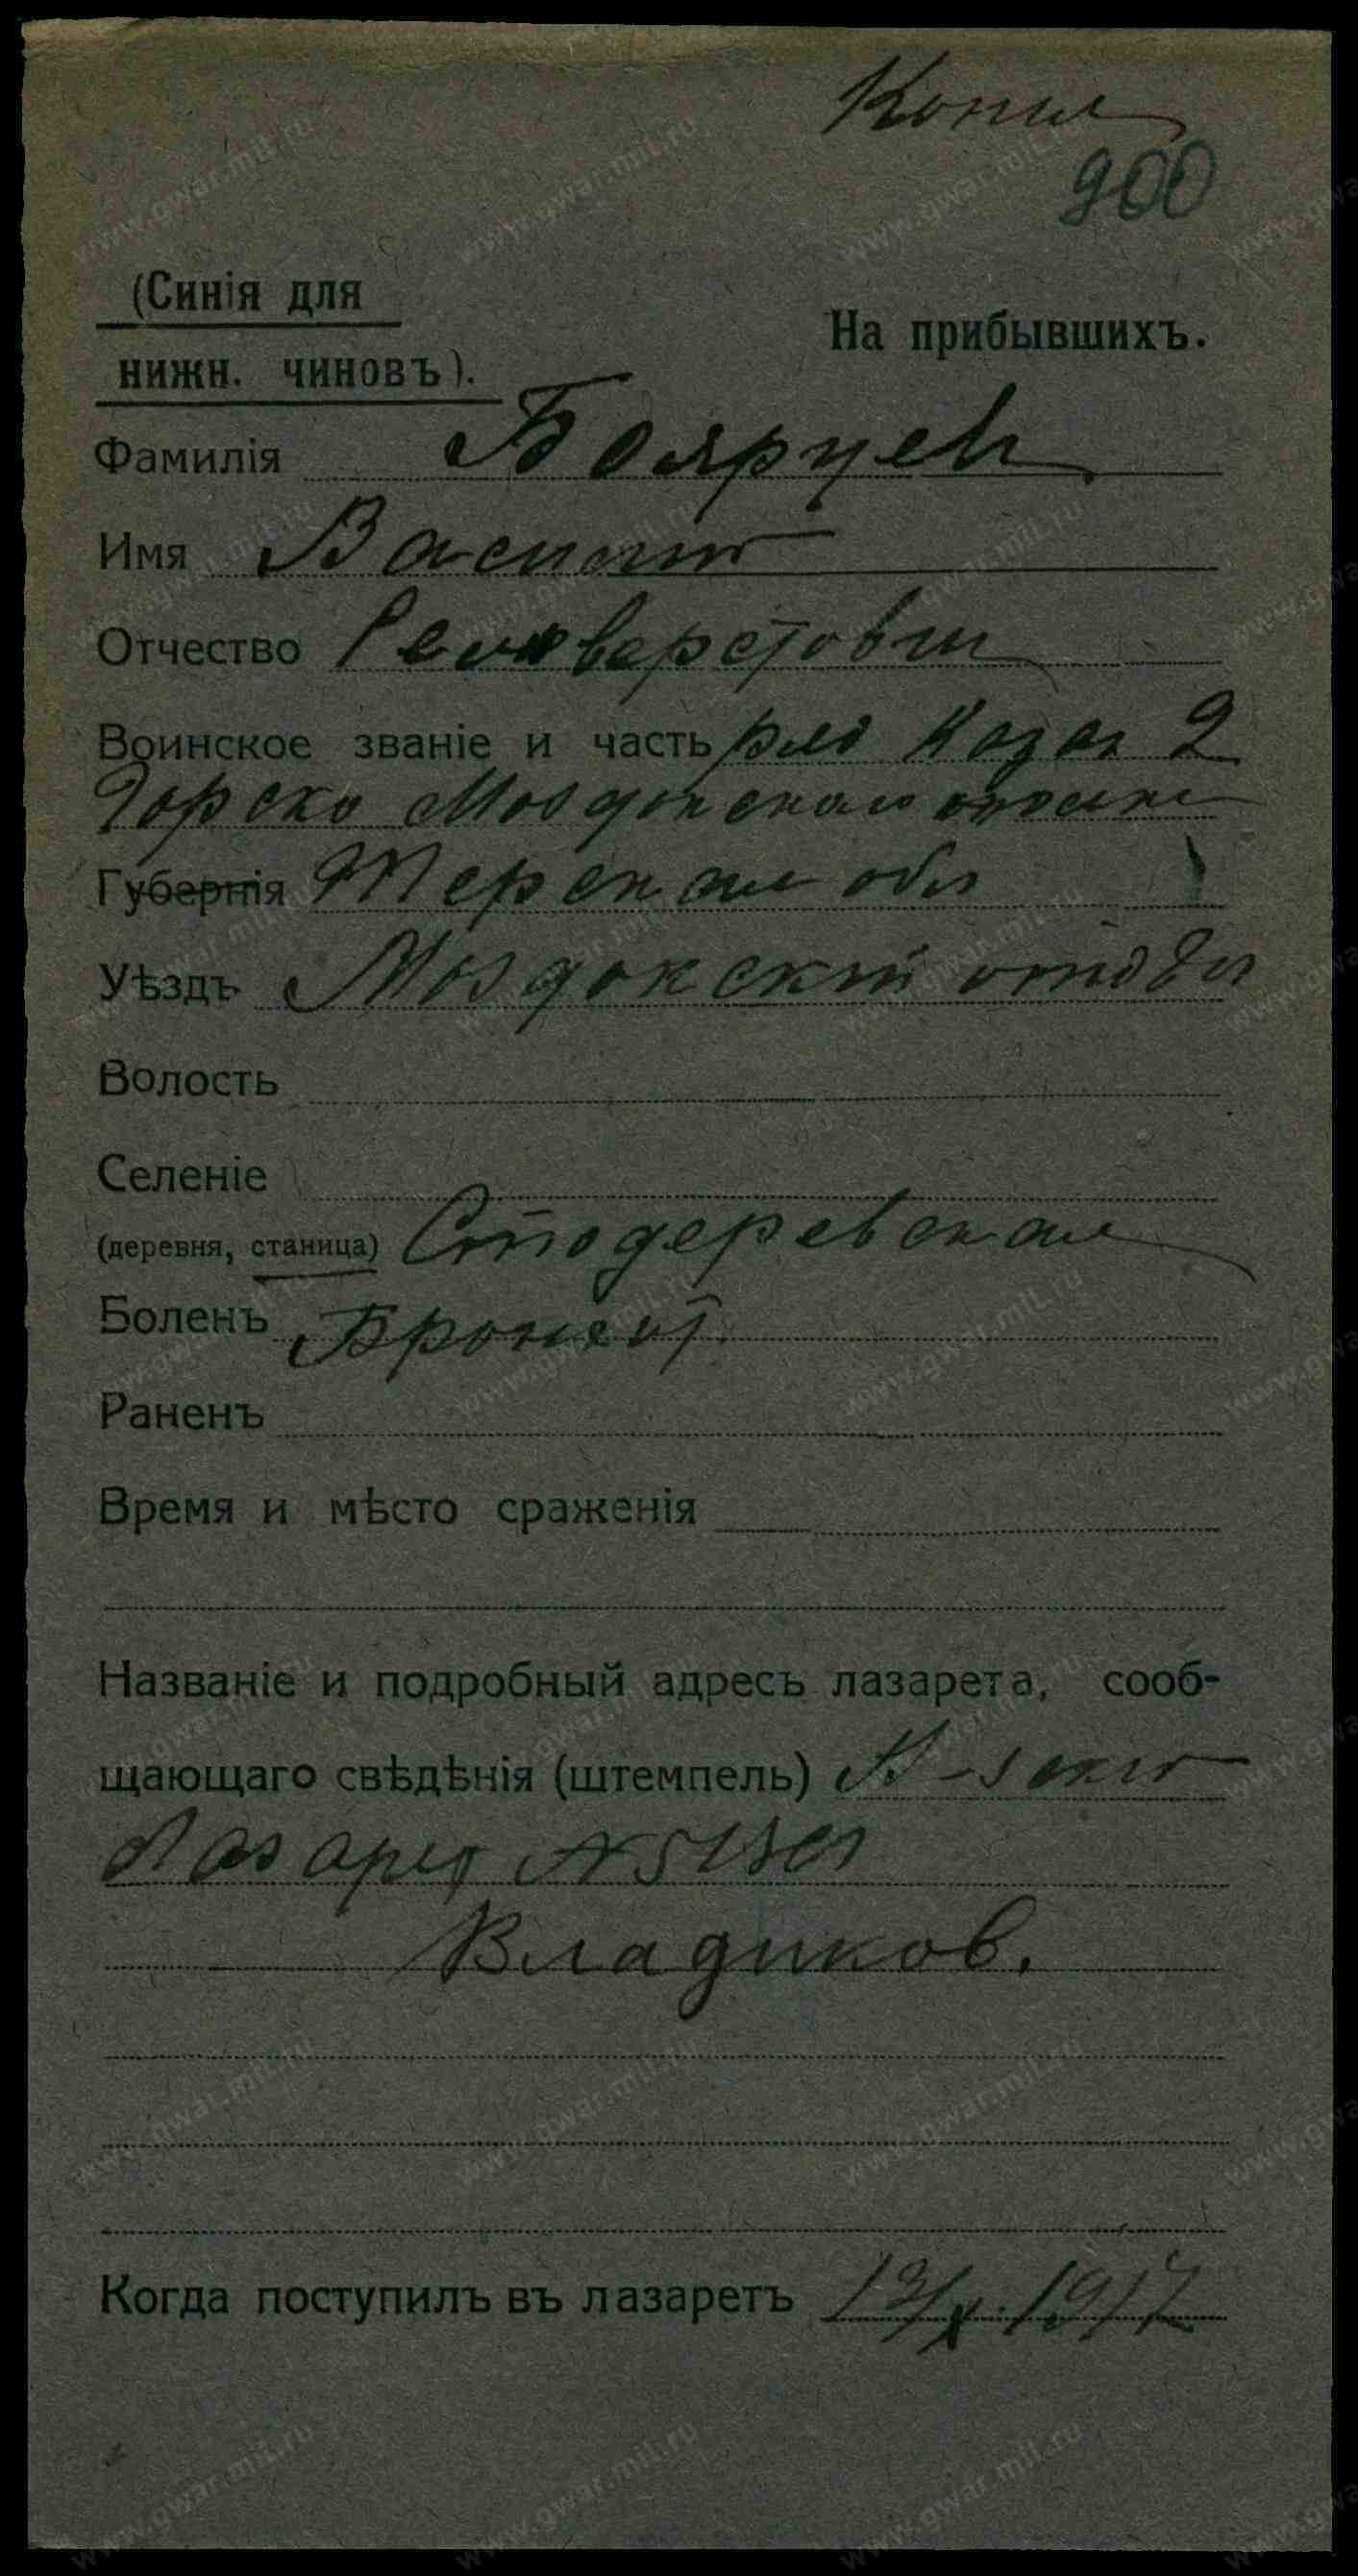 Копия
900
(Синія для
нижн. чиновъ).
На прибывшихъ.
Фамилія Боярцев
Имя Василий
Отчество
Воинское званіе и часть ряд Казак 2
Горско Моздокскаго
Губернія Терская обл
Уѣздъ Моздокский отдѣл
Волость
Селеніе
(деревня, станица) Стодеревская
Боленъ Бронхит.
Раненъ
Время и мѣсто сраженія
Названіе и подробный адресъ лазарета, сооб-
щающаго свѣдѣнія (штемпель)
Лазарет №
Владиков.
Когда поступилъ въ лазаретъ 13/X 1917
www.gwar.mil.ru